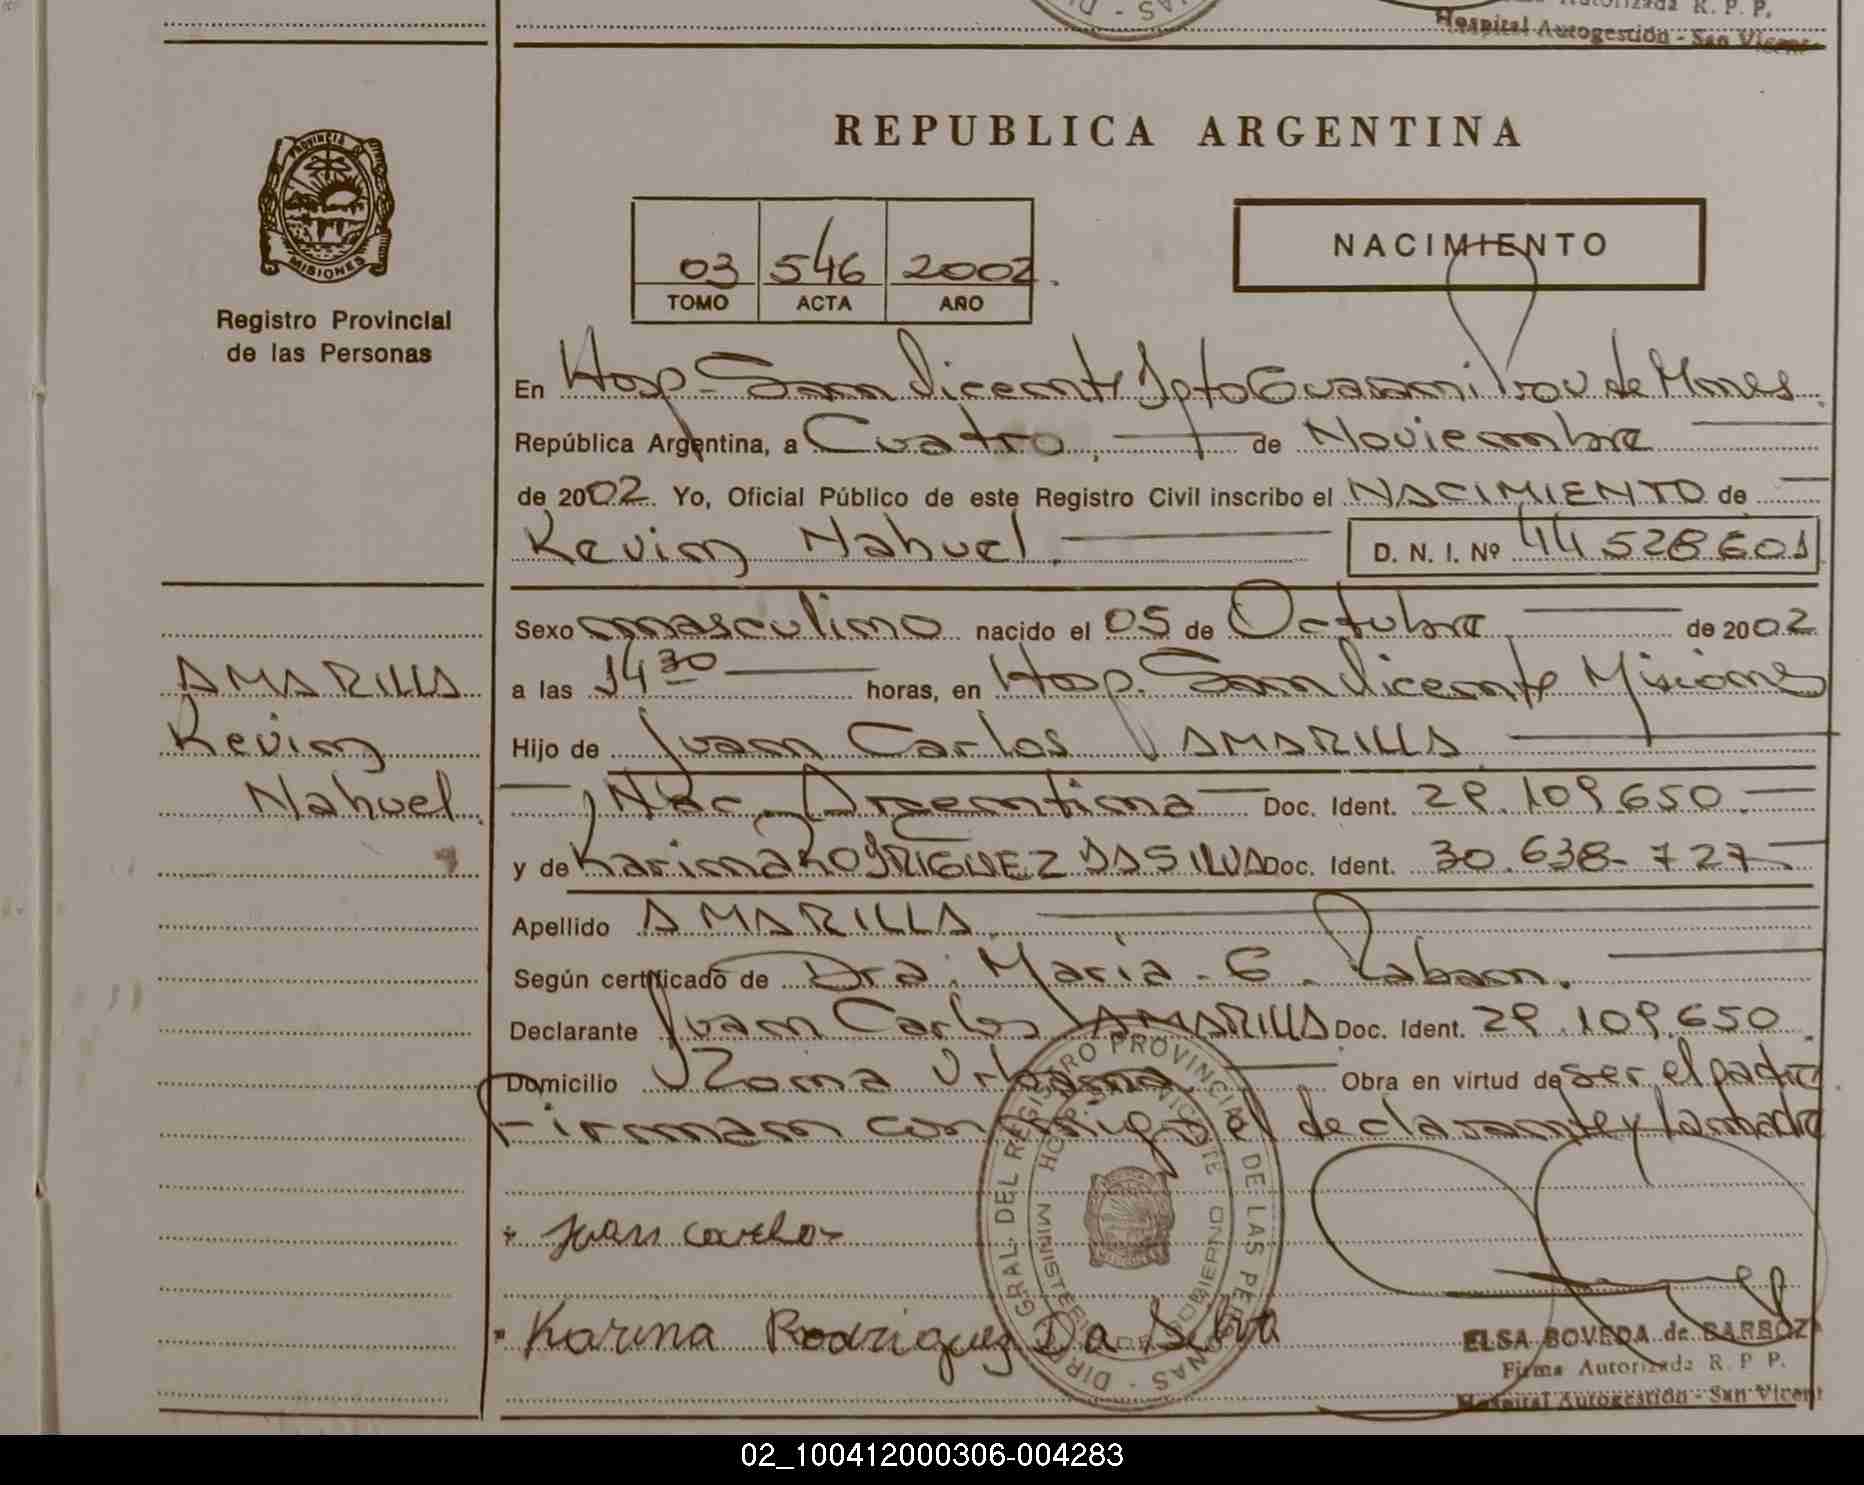 Hospital Autogestión - San Vicente
REPUBLICA ARGENTINA
PROVINCIA DE MISIONES
Registro Provincial
de las Personas
03 546 2002.
TOMO ACTA AÑO
NACIMIENTO
En Hosp. San Vicente Dpto Guarani Prov de Mnes
República Argentina, a Cuatro, de Noviembre
de 2002. Yo, Oficial Público de este Registro Civil inscribo el NACIMIENTO de
Kevin Nahuel. D. N. I. Nº 44 528 601
Sexo masculino nacido el 05 de Octubre de 2002
AMARILLA
a las 14 30 horas, en Hosp. San Vicente Misiones
Kevin
Hijo de Juan Carlos AMARILLA
Nahuel.
Nac. Argentina Doc. Ident. 29.109.650.
y de Karina RODRIGUEZ DA SILVA Doc. Ident. 30.638.727
Apellido AMARILLA.
Según certificado de Dra. Maria E.
Declarante Juan Carlos AMARILLA Doc. Ident. 29.109.650.
Domicilio Zona Urbana. Obra en virtud de ser el padre.
Firman conmigo el declarante y la madre
DIR. GRAL. DEL REGISTRO PROVINCIAL DE LAS PERSONAS
HOSP. SAN VICENTE
MINISTERIO DE GOBIERNO
Juan Carlos
Karina Rodriguez Da Silva
ELSA BOVEDA de BARBOZA
Firma Autorizada R. P. P.
Hospital Autogestión - San Vicent
02_100412000306-004283